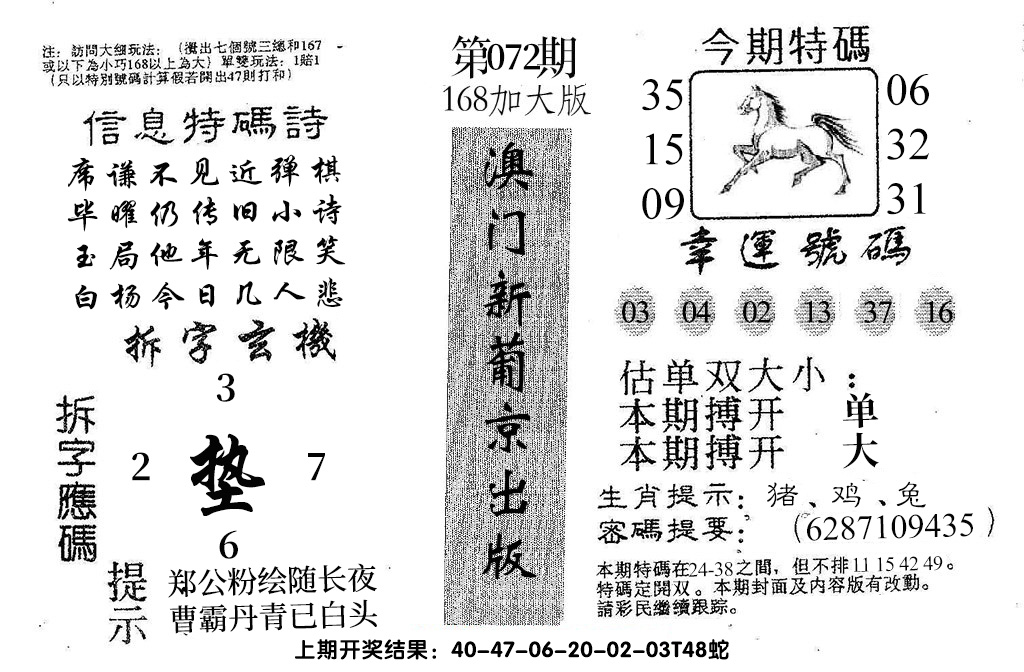 注：訪問大細玩法：（攪出七個號三總和167
或以下為小巧168以上為大）單雙玩法：1賠1
（只以特別號碼計算假若開出47則打和）
信息特碼詩
席谦不见近弹棋
毕曜仍传旧小诗
玉局他年无限笑
白杨今日几人悲
拆字玄機
拆字應碼
3
2 垫 7
6
提示
郑公粉绘随长夜
曹霸丹青已白头
第072期
168加大版
澳门新葡京出版
今期特碼
35 06
15 32
09 31
幸運號碼
03 04 02 13 37 16
估单双大小：
本期搏开 单
本期搏开 大
生肖提示：猪、鸡、兔
密碼提要：（6287109435）
本期特碼在24-38之間，但不排11 15 42 49。
特碼定開双。本期封面及内容版有改動。
請彩民繼續跟踪。
上期开奖结果：40-47-06-20-02-03T48蛇